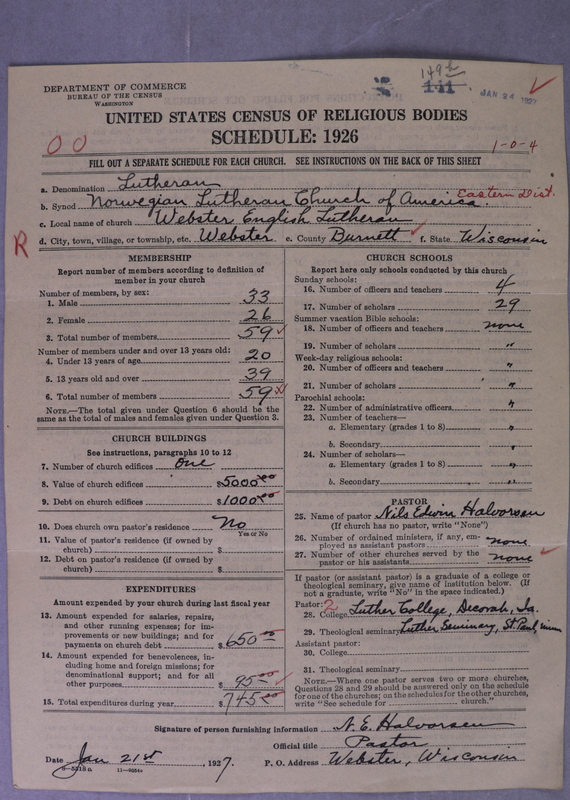 DEPARTMENT OF COMMERCE
BUREAU OF THE CENSUS
WASHINGTON
JAN 24 1927
UNITED STATES CENSUS OF RELIGIOUS BODIES
SCHEDULE: 1926
1-0-4
FILL OUT A SEPARATE SCHEDULE FOR EACH CHURCH. SEE INSTRUCTIONS ON THE BACK OF THIS SHEET
a. Denomination Lutheran
b. Synod Norwegian Lutheran Church of America. Eastern Dist.
c. Local name of church Webster English Lutheran
R d. City, town, village, or township, etc. Webster e. County Burnett f. State Wisconsin
MEMBERSHIP
Report number of members according to definition of member in your church
Number of members, by sex:
1. Male 33
2. Female 26
3. Total number of members 59
Number of members under and over 13 years old:
4. Under 13 years of age 20
5. 13 years old and over 39
6. Total number of members 59
NOTE.—The total given under Question 6 should be
same as the total of males and females given under Question 3.
CHURCH BUILDINGS
See instructions, paragraphs 10 to 12
7. Number of church edifices one
8. Value of church edifices $5000.00
9. Debt on church edifices $1000.00
10. Does church own pastor's residence No
Yes or No
11. Value of pastor's residence (if owned by
church) $
12. Debt on pastor's residence (if owned by
church) $
EXPENDITURES
Amount expended by your church during last fiscal year
13. Amount expended for salaries, repairs,
and other running expenses; for im-
provements or new buildings; and for
payments on church debt $650.00
14. Amount expended for benevolences,
including home and foreign missions; for
denominational support; and for all
other purposes $95.00
15. Total expenditures during year $745.00
CHURCH SCHOOLS
Report here only schools conducted by this church
Sunday schools:
16. Number of officers and teachers 4
17. Number of scholars 29
Summer vacation Bible schools:
18. Number of officers and teachers none
19. Number of scholars "
Week-day religious schools:
20. Number of officers and teachers "
21. Number of scholars "
Parochial schools:
22. Number of administrative officers "
23. Number of teachers—
a. Elementary (grades 1 to 8) "
b. Secondary "
24. Number of scholars—
a. Elementary (grades 1 to 8) "
b. Secondary "
PASTOR
25. Name of pastor Nils Edwin Halvorsen
(If church has no pastor, write "None")
26. Number of ordained ministers, if any, em-
ployed as assistant pastors none
27. Number of other churches served by the
pastor or his assistants none
If pastor (or assistant pastor) is a graduate of a college or
theological seminary, give name of institution below. (If
not a graduate, write "No" in the space indicated.)
Pastor: 2
28. College Luther College, Decorah, Ia.
29. Theological seminary Luther Seminary, St. Paul, Minn
Assistant pastor:
30. College
31. Theological seminary
NOTE.—Where one pastor serves two or more churches,
Questions 28 and 29 should be answered only on the schedule
for one of the churches; on the schedules for the other churches,
write "See schedule for church."
Signature of person furnishing information N. E. Halvorsen
Official title Pastor
Date Jan 21st, 1927. P. O. Address Webster, Wisconsin